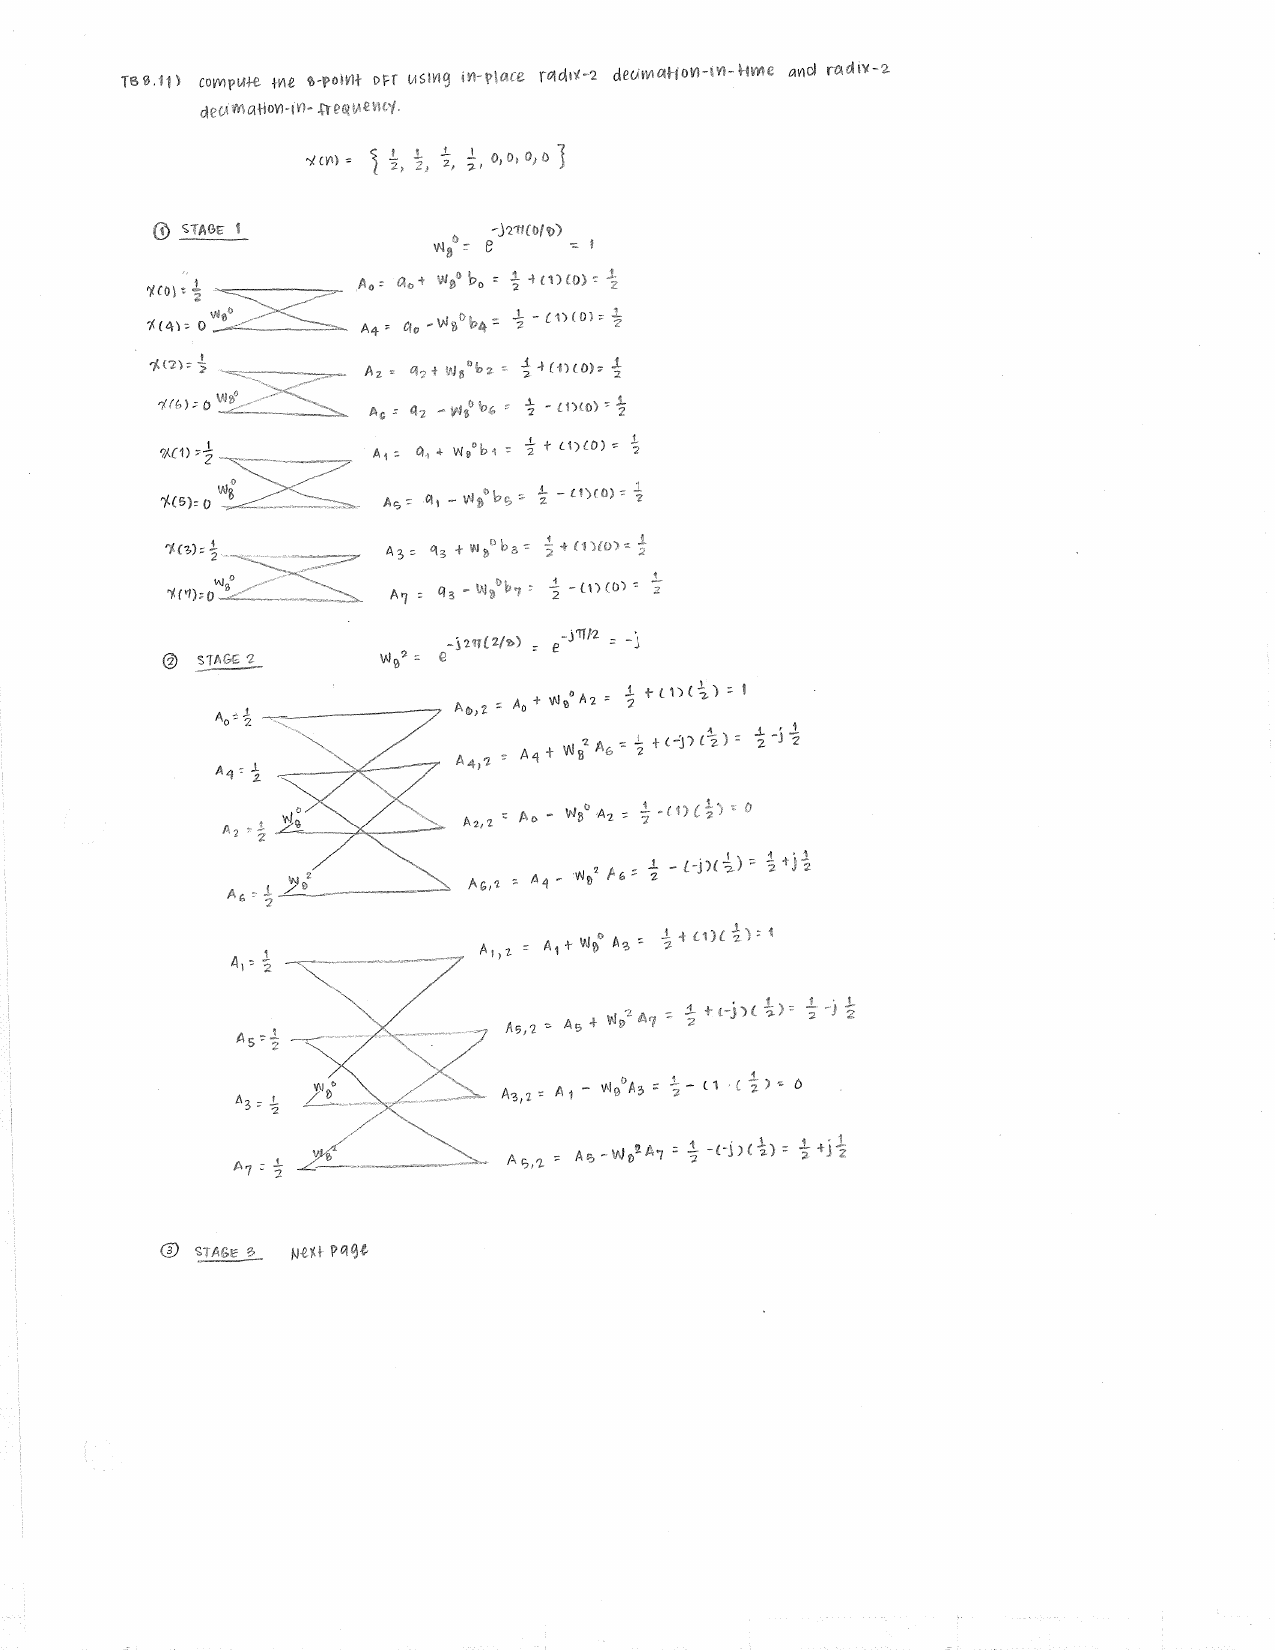 TB 8.11) compute the 8-point DFT using in-place radix-2 decimation-in-time and radix-2
decimation-in-frequency.
x(n) = { 1/2, 1/2, 1/2, 1/2, 0, 0, 0, 0 }
① STAGE 1
W₈⁰ = e^(-j2π(0/8)) = 1
x(0) = 1/2 A₀ = a₀ + W₈⁰ b₀ = 1/2 + (1)(0) = 1/2
x(4) = 0 W₈⁰ A₄ = a₀ - W₈⁰ b₄ = 1/2 - (1)(0) = 1/2
x(2) = 1/2 A₂ = a₂ + W₈⁰ b₂ = 1/2 + (1)(0) = 1/2
x(6) = 0 W₈⁰ A₆ = a₂ - W₈⁰ b₆ = 1/2 - (1)(0) = 1/2
x(1) = 1/2 A₁ = a₁ + W₈⁰ b₁ = 1/2 + (1)(0) = 1/2
x(5) = 0 W₈⁰ A₅ = a₁ - W₈⁰ b₅ = 1/2 - (1)(0) = 1/2
x(3) = 1/2 A₃ = a₃ + W₈⁰ b₃ = 1/2 + (1)(0) = 1/2
x(7) = 0 W₈⁰ A₇ = a₃ - W₈⁰ b₇ = 1/2 - (1)(0) = 1/2
② STAGE 2 W₈² = e^(-j2π(2/8)) = e^(-jπ/2) = -j
A₀ = 1/2 A₀,₂ = A₀ + W₈⁰ A₂ = 1/2 + (1)(1/2) = 1
A₄ = 1/2 A₄,₂ = A₄ + W₈² A₆ = 1/2 + (-j)(1/2) = 1/2 - j 1/2
A₂ = 1/2 W₈⁰ A₂,₂ = A₀ - W₈⁰ A₂ = 1/2 - (1)(1/2) = 0
A₆ = 1/2 W₈² A₆,₂ = A₄ - W₈² A₆ = 1/2 - (-j)(1/2) = 1/2 + j 1/2
A₁ = 1/2 A₁,₂ = A₁ + W₈⁰ A₃ = 1/2 + (1)(1/2) = 1
A₅ = 1/2 A₅,₂ = A₅ + W₈² A₇ = 1/2 + (-j)(1/2) = 1/2 - j 1/2
A₃ = 1/2 W₈⁰ A₃,₂ = A₁ - W₈⁰ A₃ = 1/2 - (1 · (1/2) = 0
A₇ = 1/2 W₈² A₅,₂ = A₅ - W₈² A₇ = 1/2 - (-j)(1/2) = 1/2 + j 1/2
③ STAGE 3 Next page